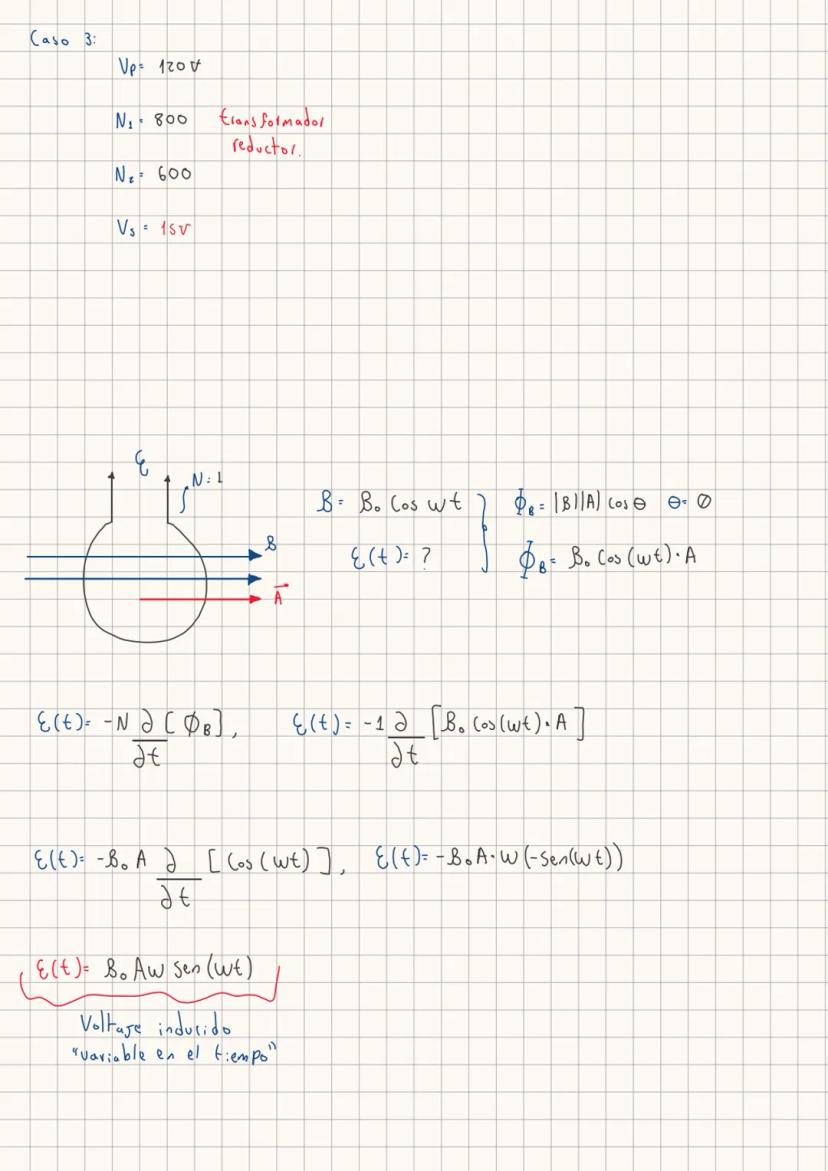 Caso 3:
Vp= 120 V
N₁= 800 transformador
reductor.
N₂= 600
Vs= 15V
ℰ
N=1
B
A⃗
B= B₀ Cos wt
ℰ(t)= ?
ϕ_B= |B||A| cos θ θ= 0
ϕ_B= B₀ Cos(wt)·A
ℰ(t)= -N ∂/∂t [ϕ_B], ℰ(t)= -1 ∂/∂t [B₀ Cos(wt)·A]
ℰ(t)= -B₀ A ∂/∂t [Cos(wt)], ℰ(t)= -B₀A·W(-Sen(wt))
ℰ(t)= B₀ Aw Sen(wt)
Voltaje inducido
"variable en el tiempo"